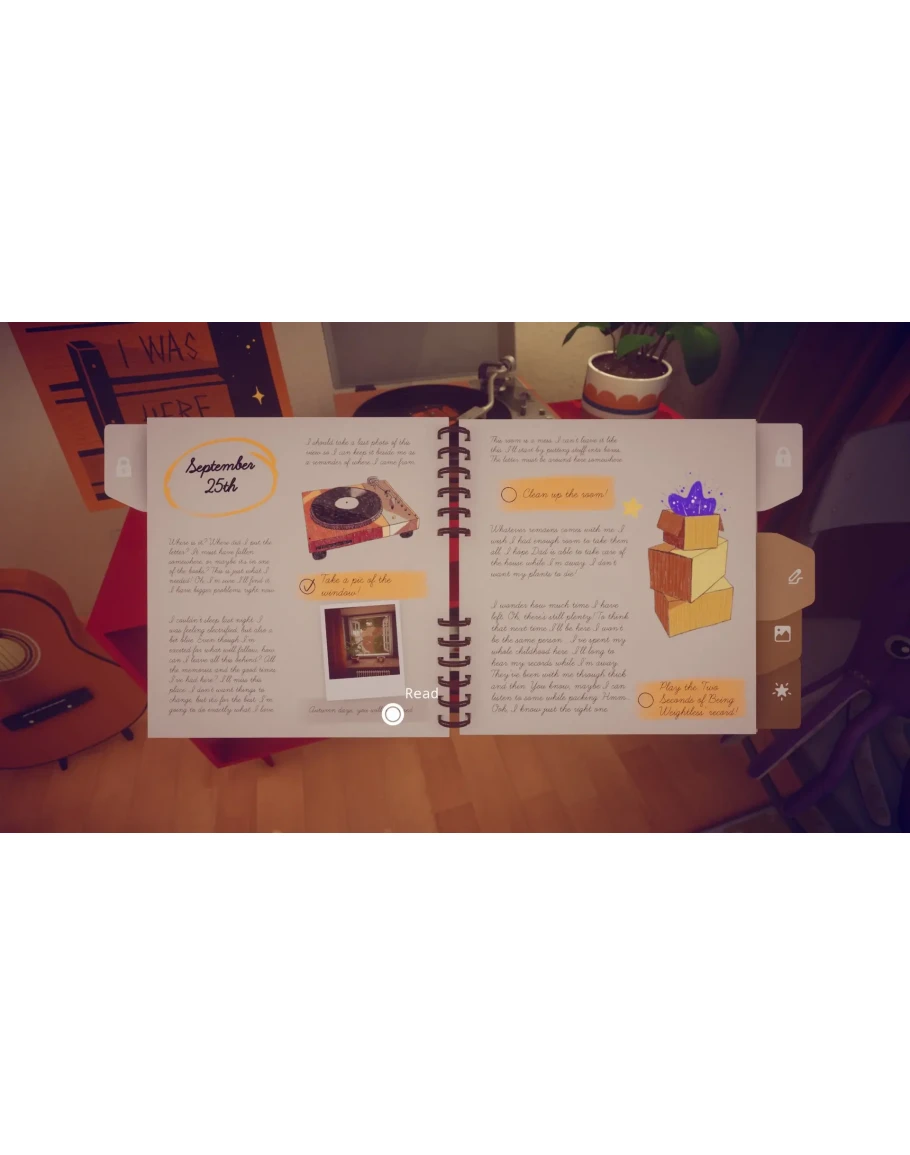 I WAS
HERE
September
25th
Where is it? Where did I put the
letter? It must have fallen
somewhere, or maybe it's in one
of the books? This is just what I
needed! Oh, I'm sure I'll find it.
I have bigger problems right now.
I couldn't sleep last night. I
was feeling electrified, but also a
bit blue. Even though I'm
excited for what will follow, how
can I leave all this behind? All
the memories and the good times
I've had here? I'll miss this
place. I don't want things to
change, but it's for the best. I'm
going to do exactly what I love.
I should take a last photo of this
view so I can keep it beside me as
a reminder of where I come from.
Take a pic of the
window!
Read
Awesome
This room is a mess. I can't leave it like
this. I'll start by putting stuff into boxes.
The letter must be around here somewhere.
Clean up the room!
Whatever remains comes with me. I
wish I had enough room to take them
all. I hope Dad is able to take care of
the house while I'm away. I don't
want my plants to die!
I wonder how much time I have
left. Oh, there's still plenty! To think
that next time I'll be here I won't
be the same person... I've spent my
whole childhood here. I'll long to
hear my records while I'm away.
They've been with me through thick
and thin. You know, maybe I can
listen to some while packing. Hmm...
Ooh, I know just the right one.
Play the Two
Seconds of Being
Weightless record!